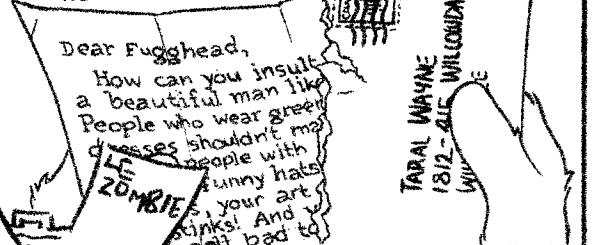 Dear Fugghead,
How can you insult
a beautiful man like
People who wear green
shouldn't
people with
funny hats
, your art
stinks! And
bad to
5
ZOMBIE
TARAL WAYNE
1812-415 WILLOWDA